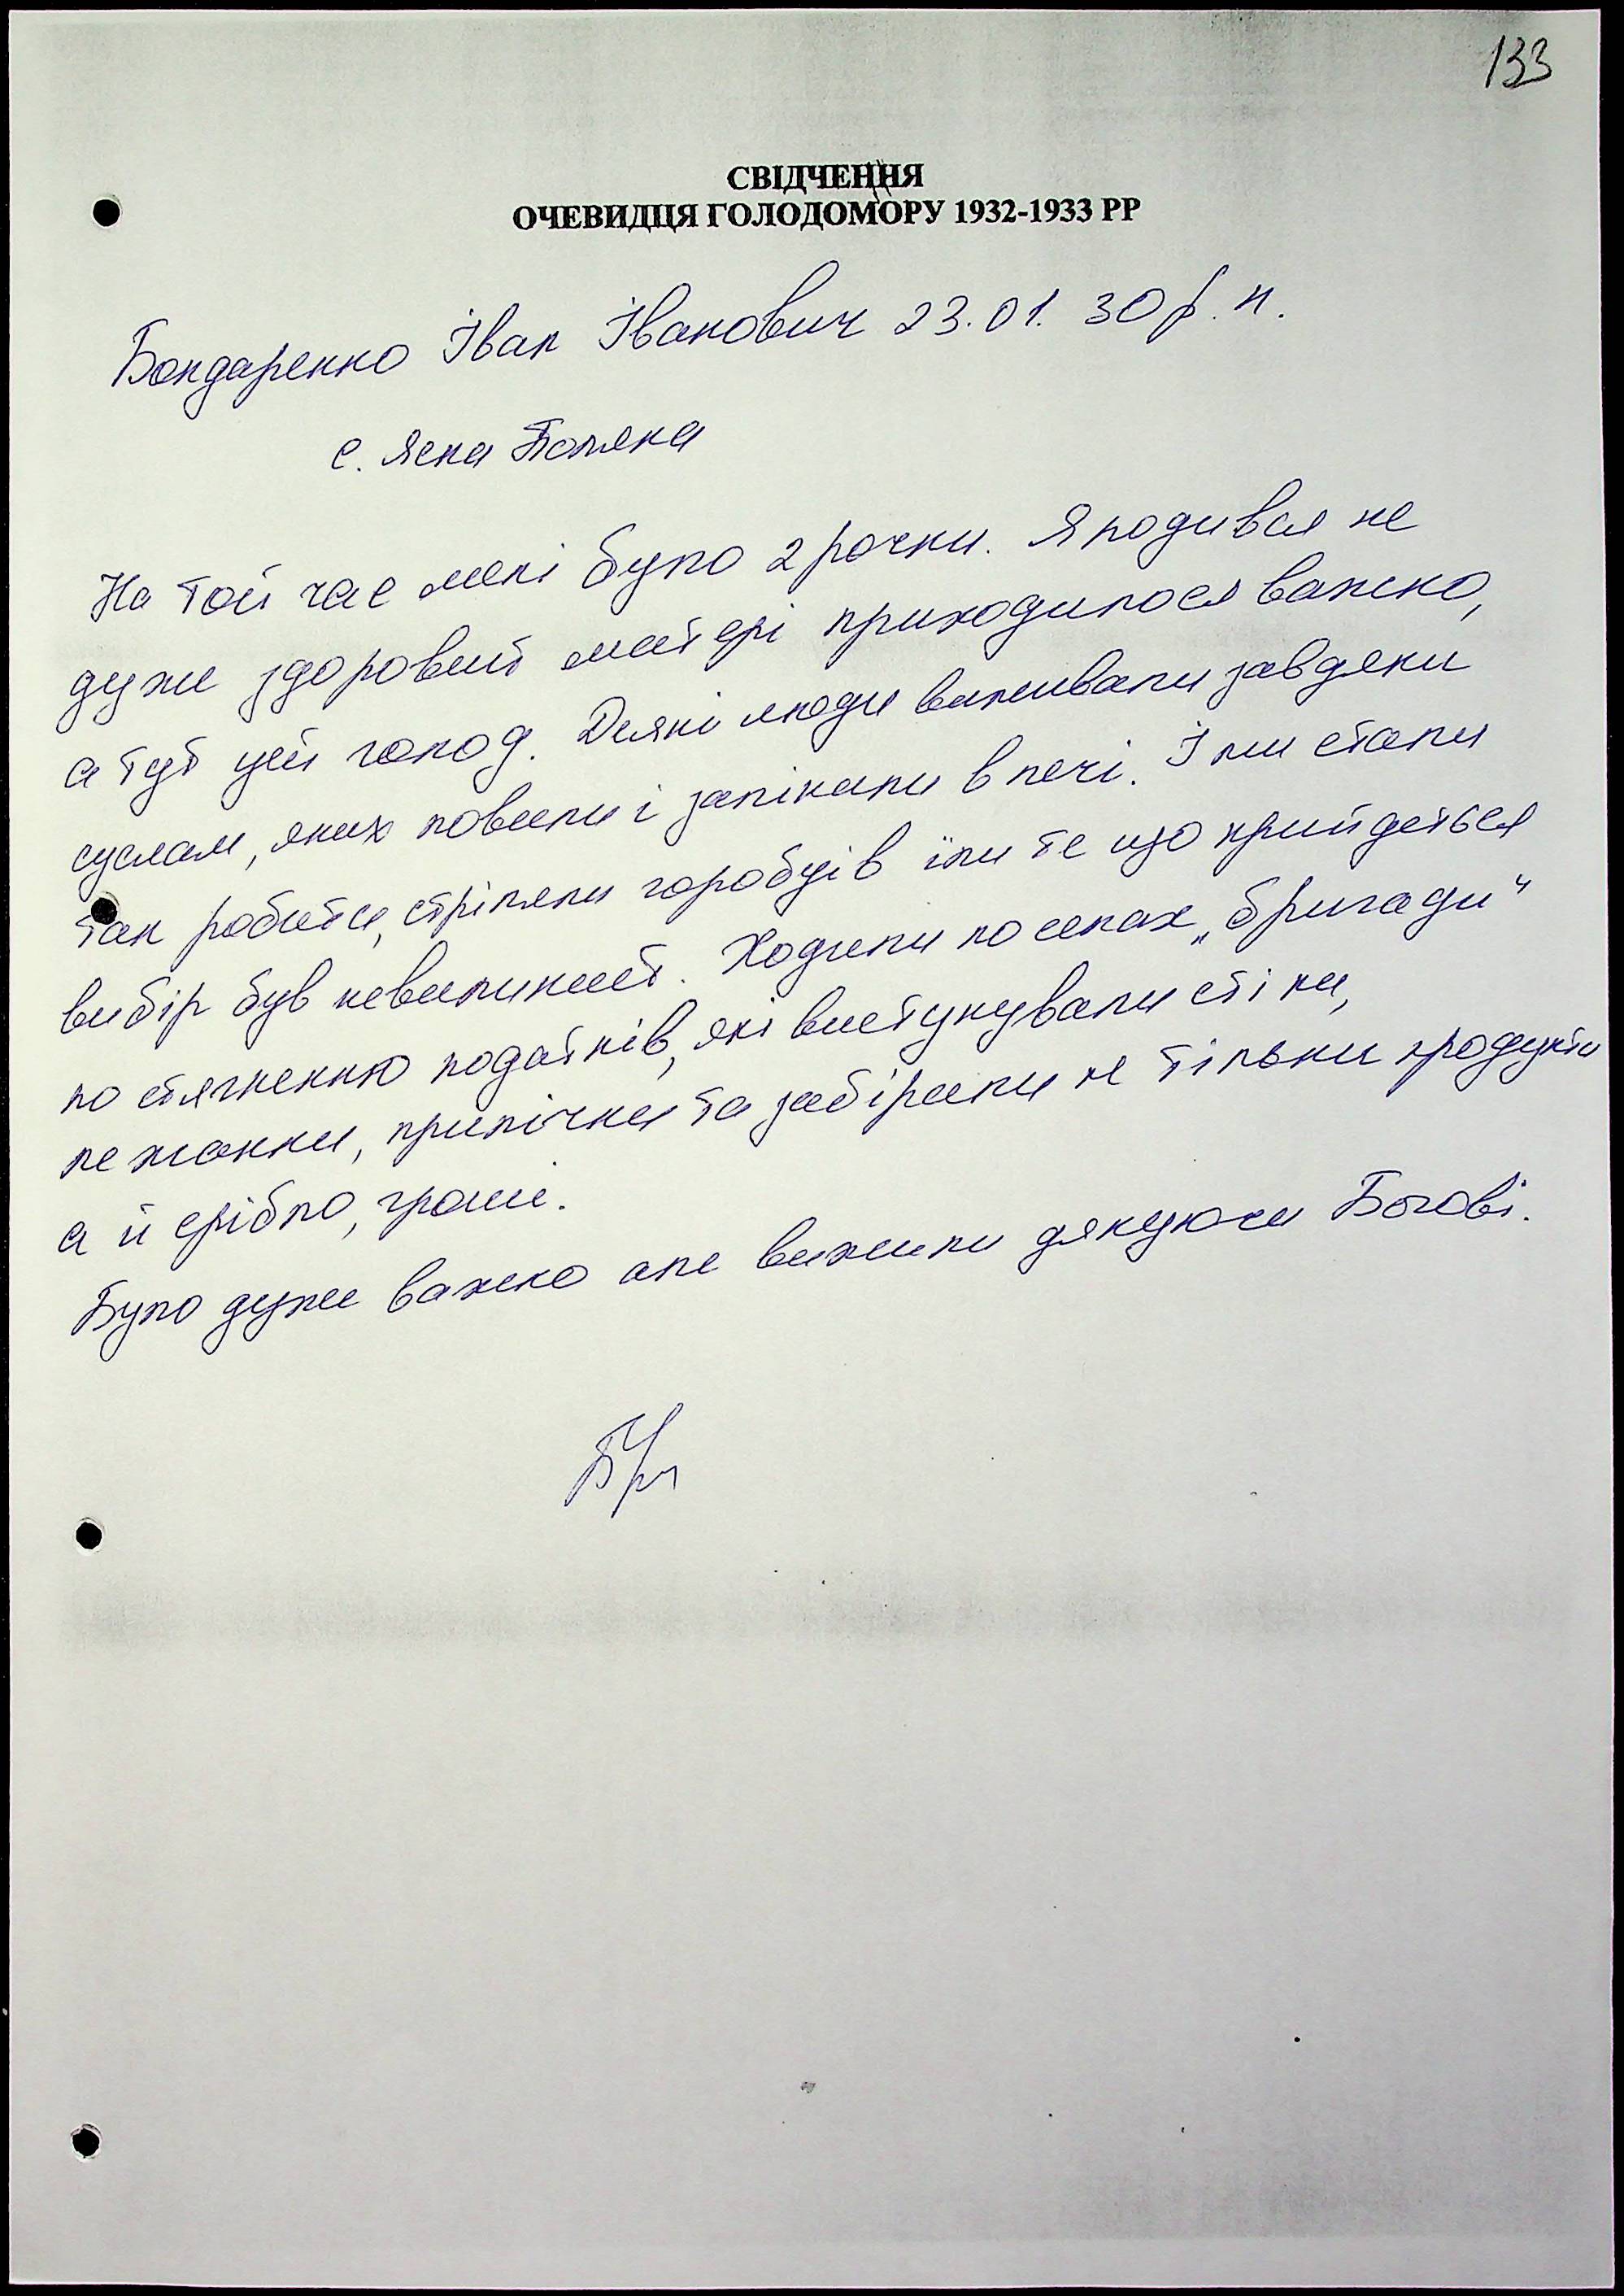 133
СВІДЧЕННЯ
ОЧЕВИДЦЯ ГОЛОДОМОРУ 1932-1933 РР
Бондаренко Іван Іванович 23.01.30 р.н.
с. Ясна Поляна
На той час мені було 2 рочки. Я родився не
дуже здоровий матері приходилося важко,
а тут цей голод. Деякі люди виживали завдяки
суслам, яких ловили і запікали в печі. І ми стали
так робити, стріляли горобців їли те що прийдеться
вибір був невеликий. Ходили по селах „бригади"
по стягненню податків, які вистукували стіни,
лежанки, припічки та забірали не тільки продукти
а й срібло, гроші.
Було дуже важко але вижили дякуючи Богові.